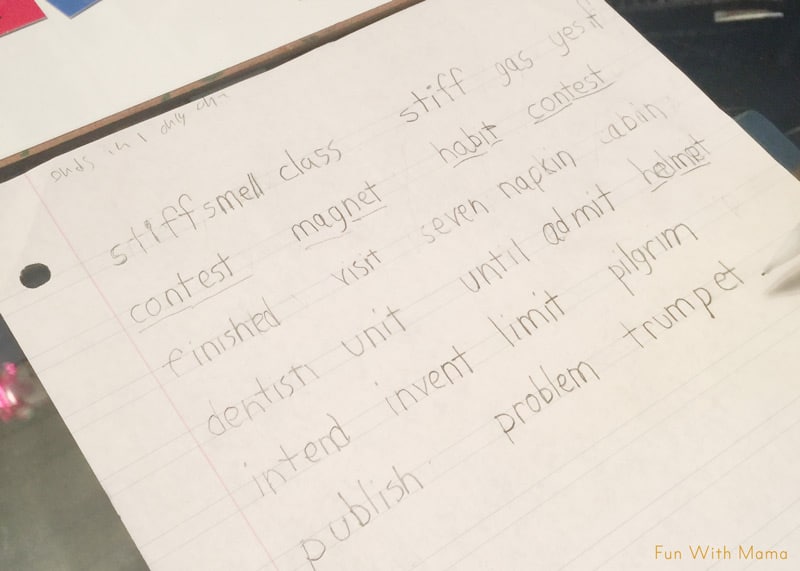 stiff smell class stiff gas yes
contest magnet habit contest
finished visit seven napkin
dentist unit until admit helmet
intend invent limit pilgrim
publish problem trumpet
Fun With Mama